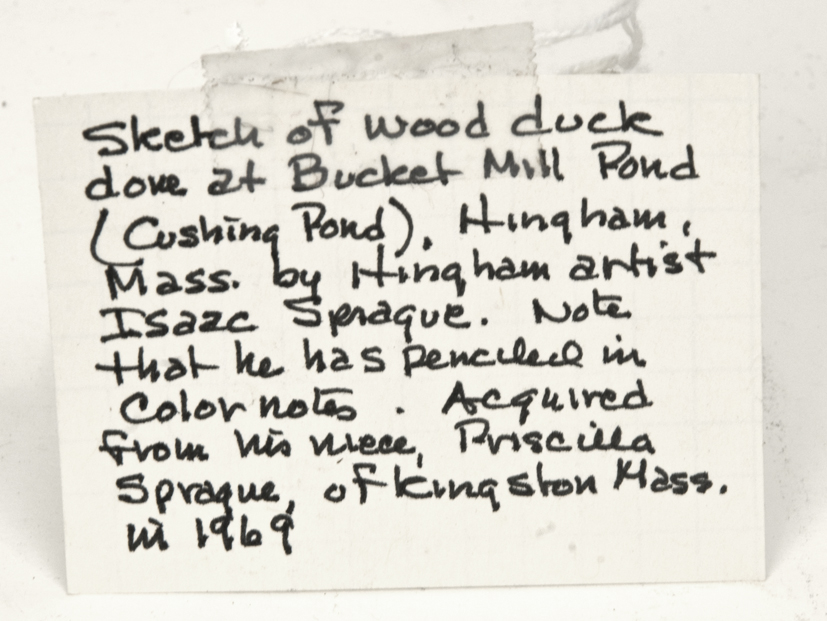 Sketch of wood duck
done at Bucket Mill Pond
(Cushing Pond), Hingham,
Mass. by Hingham artist
Isaac Sprague. Note
that he has penciled in
Color notes . Acquired
from his niece, Priscilla
Sprague, of Kingston Mass.
in 1969